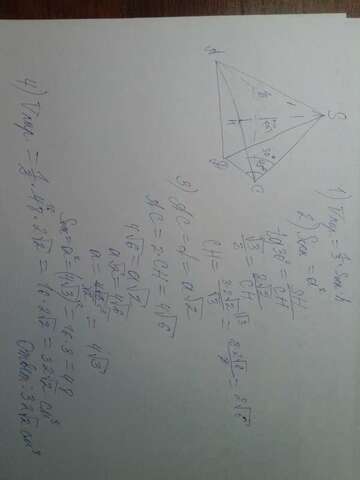 S
A
B
C
D
H
30°
1) Vпир. = 1/3 Sосн h
2) Sосн = a²
tg30° = SH/CH
√3/3 = 2√2/CH
CH = 3·2√2·√3/√3 = 3·2√2/√3 = 2√6
3) AC = d = a√2
AC = 2CH = 4√6
4√6 = a√2
a√2 = 4√6
a = 4√6/√2 = 4√3
Sосн = a² = (4√3)² = 16·3 = 48
4) Vпир. = 1/3 · 48 · 2√2 = 16·2√2 = 32√2 см³
Ответ: 32√2 см³